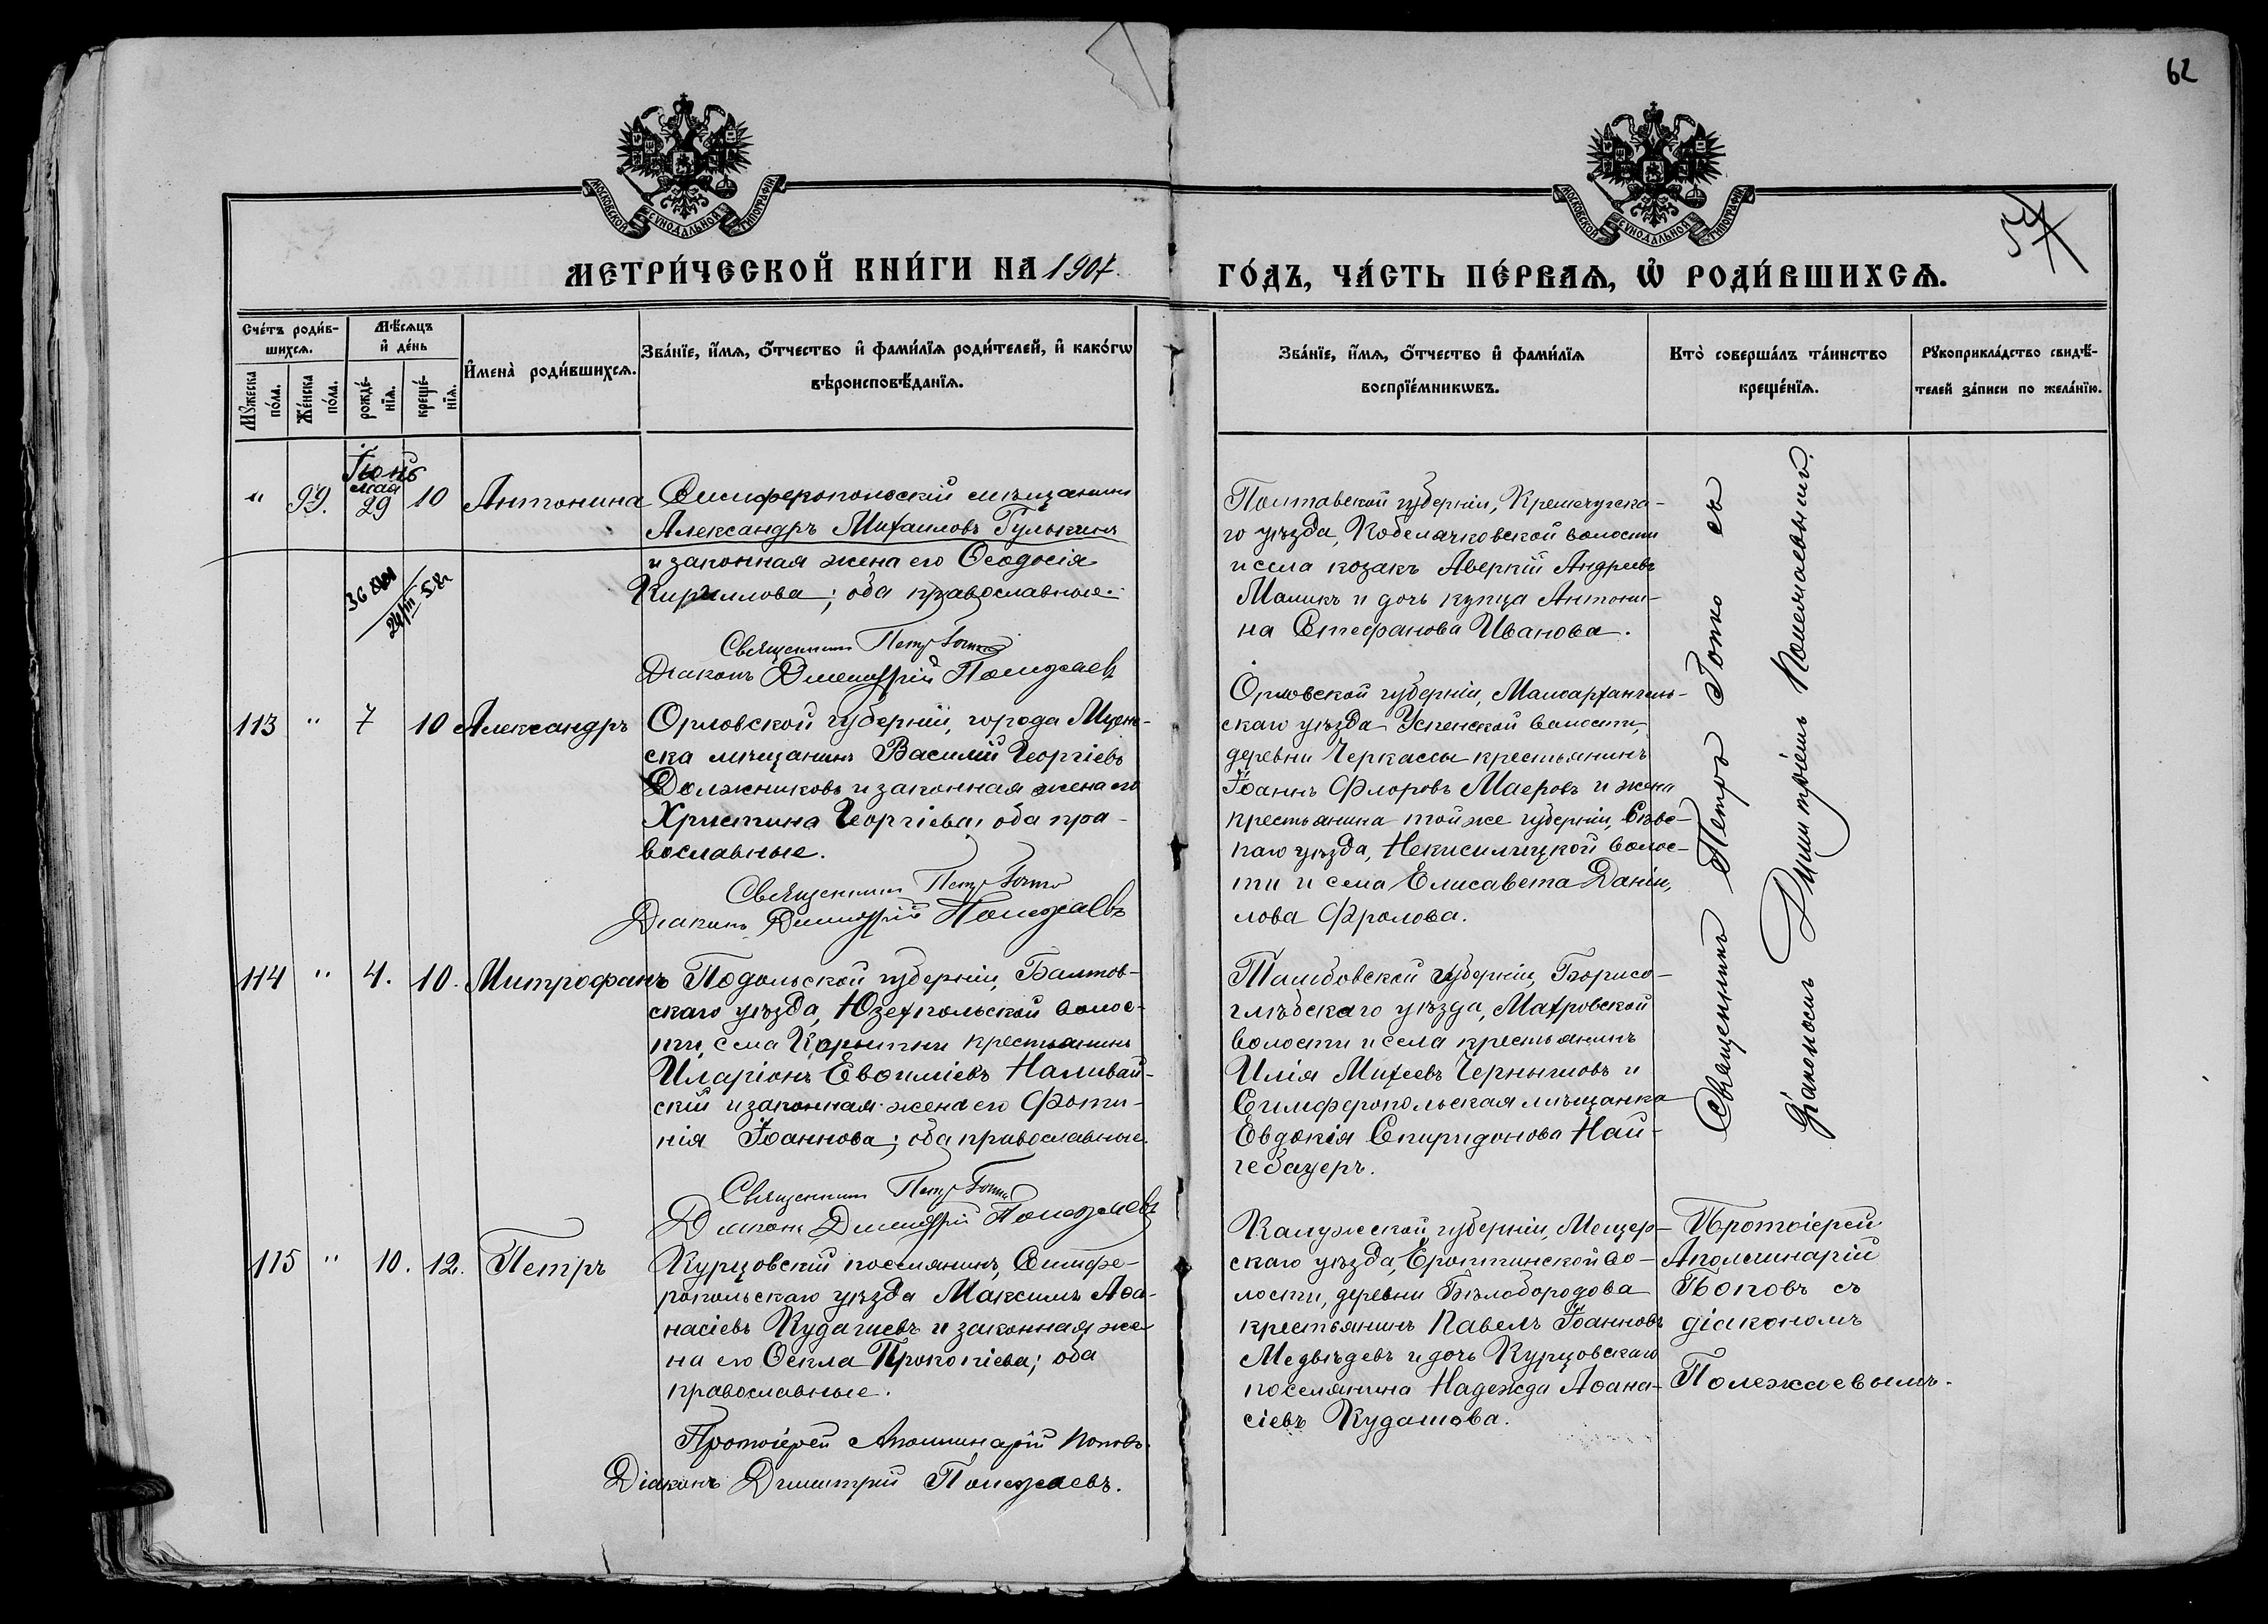 62
57
МОСКОВСКОЙ СѴНОДАЛЬНОЙ ТИПОГРАФІИ
МОСКОВСКОЙ СѴНОДАЛЬНОЙ ТИПОГРАФІИ
МЕТРИ́ЧЕСКОЙ КНИ́ГИ НА 1907
ГО́ДЪ, ЧА́СТЬ ПЕ́РВАѦ, Ѡ҆ РОДИ́ВШИХСѦ.
Сче́тъ роди́в-
шихсѧ.
Мꙋ́жеска по́ла.
Же́нска по́ла.
Мѣ́сѧцъ и҆ де́нь
рожде́-
нїѧ.
креще́-
нїѧ.
И҆мена̀ роди́вшихсѧ.
Зва́нїе, и҆́мѧ, ѻ҆́тчество и҆ фами́лїѧ роди́телей, и҆ како́гѡ
вѣроисповѣ́данїѧ.
Зва́нїе, и҆́мѧ, ѻ҆́тчество и҆ фами́лїѧ
воспрїе́мникѡвъ.
Кто̀ соверша́лъ та́инство
креще́нїѧ.
Рꙋкоприкла́дство свидѣ́-
телей за́писи по жела́нїю.
Іюнь
" 99. мая 29 10 Антонина Симферопольскій мѣщанинъ
Александръ Михаиловъ Гулькинъ
и законная жена его Ѳеодосія
Кириллова; оба православные.
Священникъ Петръ
Діаконъ Димитрій Полежаевъ
Полтавской губерніи, Кременчугска-
го уѣзда, Кобелячковской волости
и села козакъ Аверкій Андреевъ
Маликъ и дочь купца Антони-
на Стефанова Иванова.
113 " 7 10 Александръ Орловской губерніи, города Мцен-
ска мѣщанинъ Василій Георгіевъ
Должниковъ и законная жена его
Христина Георгіева, оба пра-
вославные.
Священникъ Петръ
Діаконъ Димитрій Полежаевъ
Орловской губерніи, Малоархангель-
скаго уѣзда Успенской волости,
деревни Черкассы крестьянинъ
Іоаннъ Флоровъ Маеровъ и жена
крестьянина той же губерніи, Сѣвс-
каго уѣзда, волос-
ти и села Елисавета Даніи-
лова Фролова.
114 " 4. 10. Митрофанъ Подольской губерніи, Балтов-
скаго уѣзда, Юзефпольской волос-
ти, села крестьянинъ
Иларіонъ Евѳиміевъ Наливай-
скій и законная жена его Фоти-
нія Іоаннова; оба православные.
Священникъ Петръ
Діаконъ Димитрій Полежаевъ
Тамбовской губерніи, Борисо-
глѣбскаго уѣзда, Махровской
волости и села крестьянинъ
Илія Михеевъ Чернышовъ и
Симферопольская мѣщанка
Евдокія Спиридонова Най-
гебауеръ.
Священникъ Петръ съ
Діакономъ Димитріемъ Полежаевымъ.
115 " 10. 12. Петръ Курцовскій поселянинъ, Симфе-
ропольскаго уѣзда Максимъ Аѳа-
насіевъ Кудашевъ и законная же-
на его Ѳекла Прокопіева; оба
православные.
Протоіерей Аполлинарій Поповъ.
Діаконъ Димитрій Полежаевъ.
Калужской губерніи, Мещер-
скаго уѣзда, во-
лости, деревни Бѣлобородова
крестьянинъ Павелъ Іоанновъ
Медвѣдевъ и дочь Курцовскаго
поселянина Надежда Аѳана-
сіевъ Кудашова.
Протоіерей
Аполлинарій
Поповъ съ
діакономъ
Полежаевымъ.